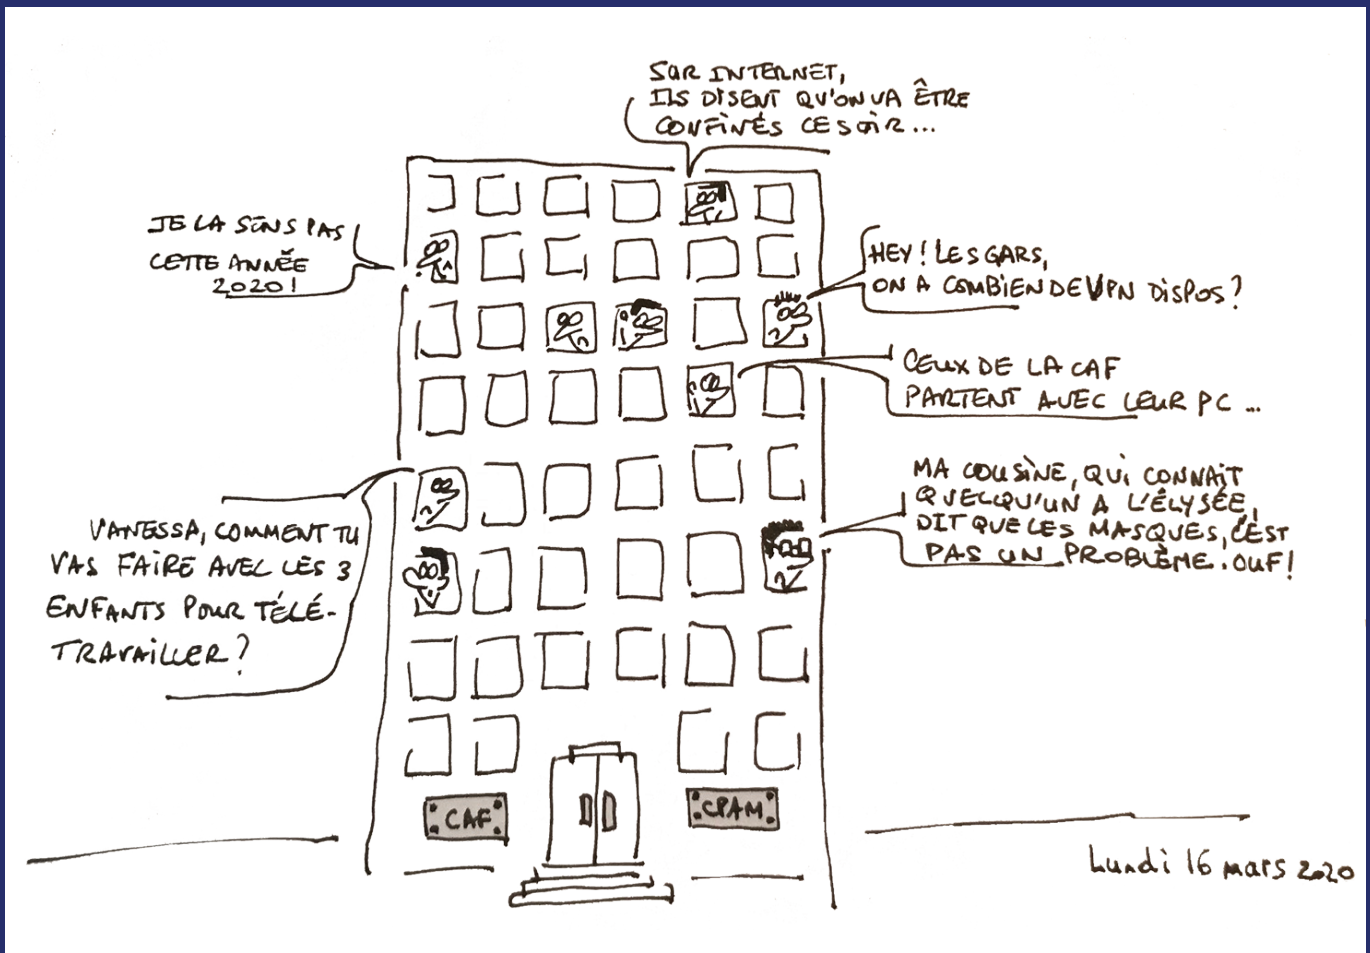 SUR INTERNET,
ILS DISENT QU'ON VA ÊTRE
CONFINÉS CE SOIR...
JE LA SENS PAS
CETTE ANNÉE
2020!
HEY! LES GARS,
ON A COMBIEN DE VPN DISPOS?
CEUX DE LA CAF
PARTENT AVEC LEUR PC...
MA COUSINE, QUI CONNAÎT
QUELQU'UN A L'ÉLYSÉE,
DIT QUE LES MASQUES, C'EST
PAS UN PROBLÈME. OUF!
VANESSA, COMMENT TU
VAS FAIRE AVEC LES 3
ENFANTS POUR TÉLÉ-
TRAVAILLER?
CAF
CPAM
Lundi 16 mars 2020